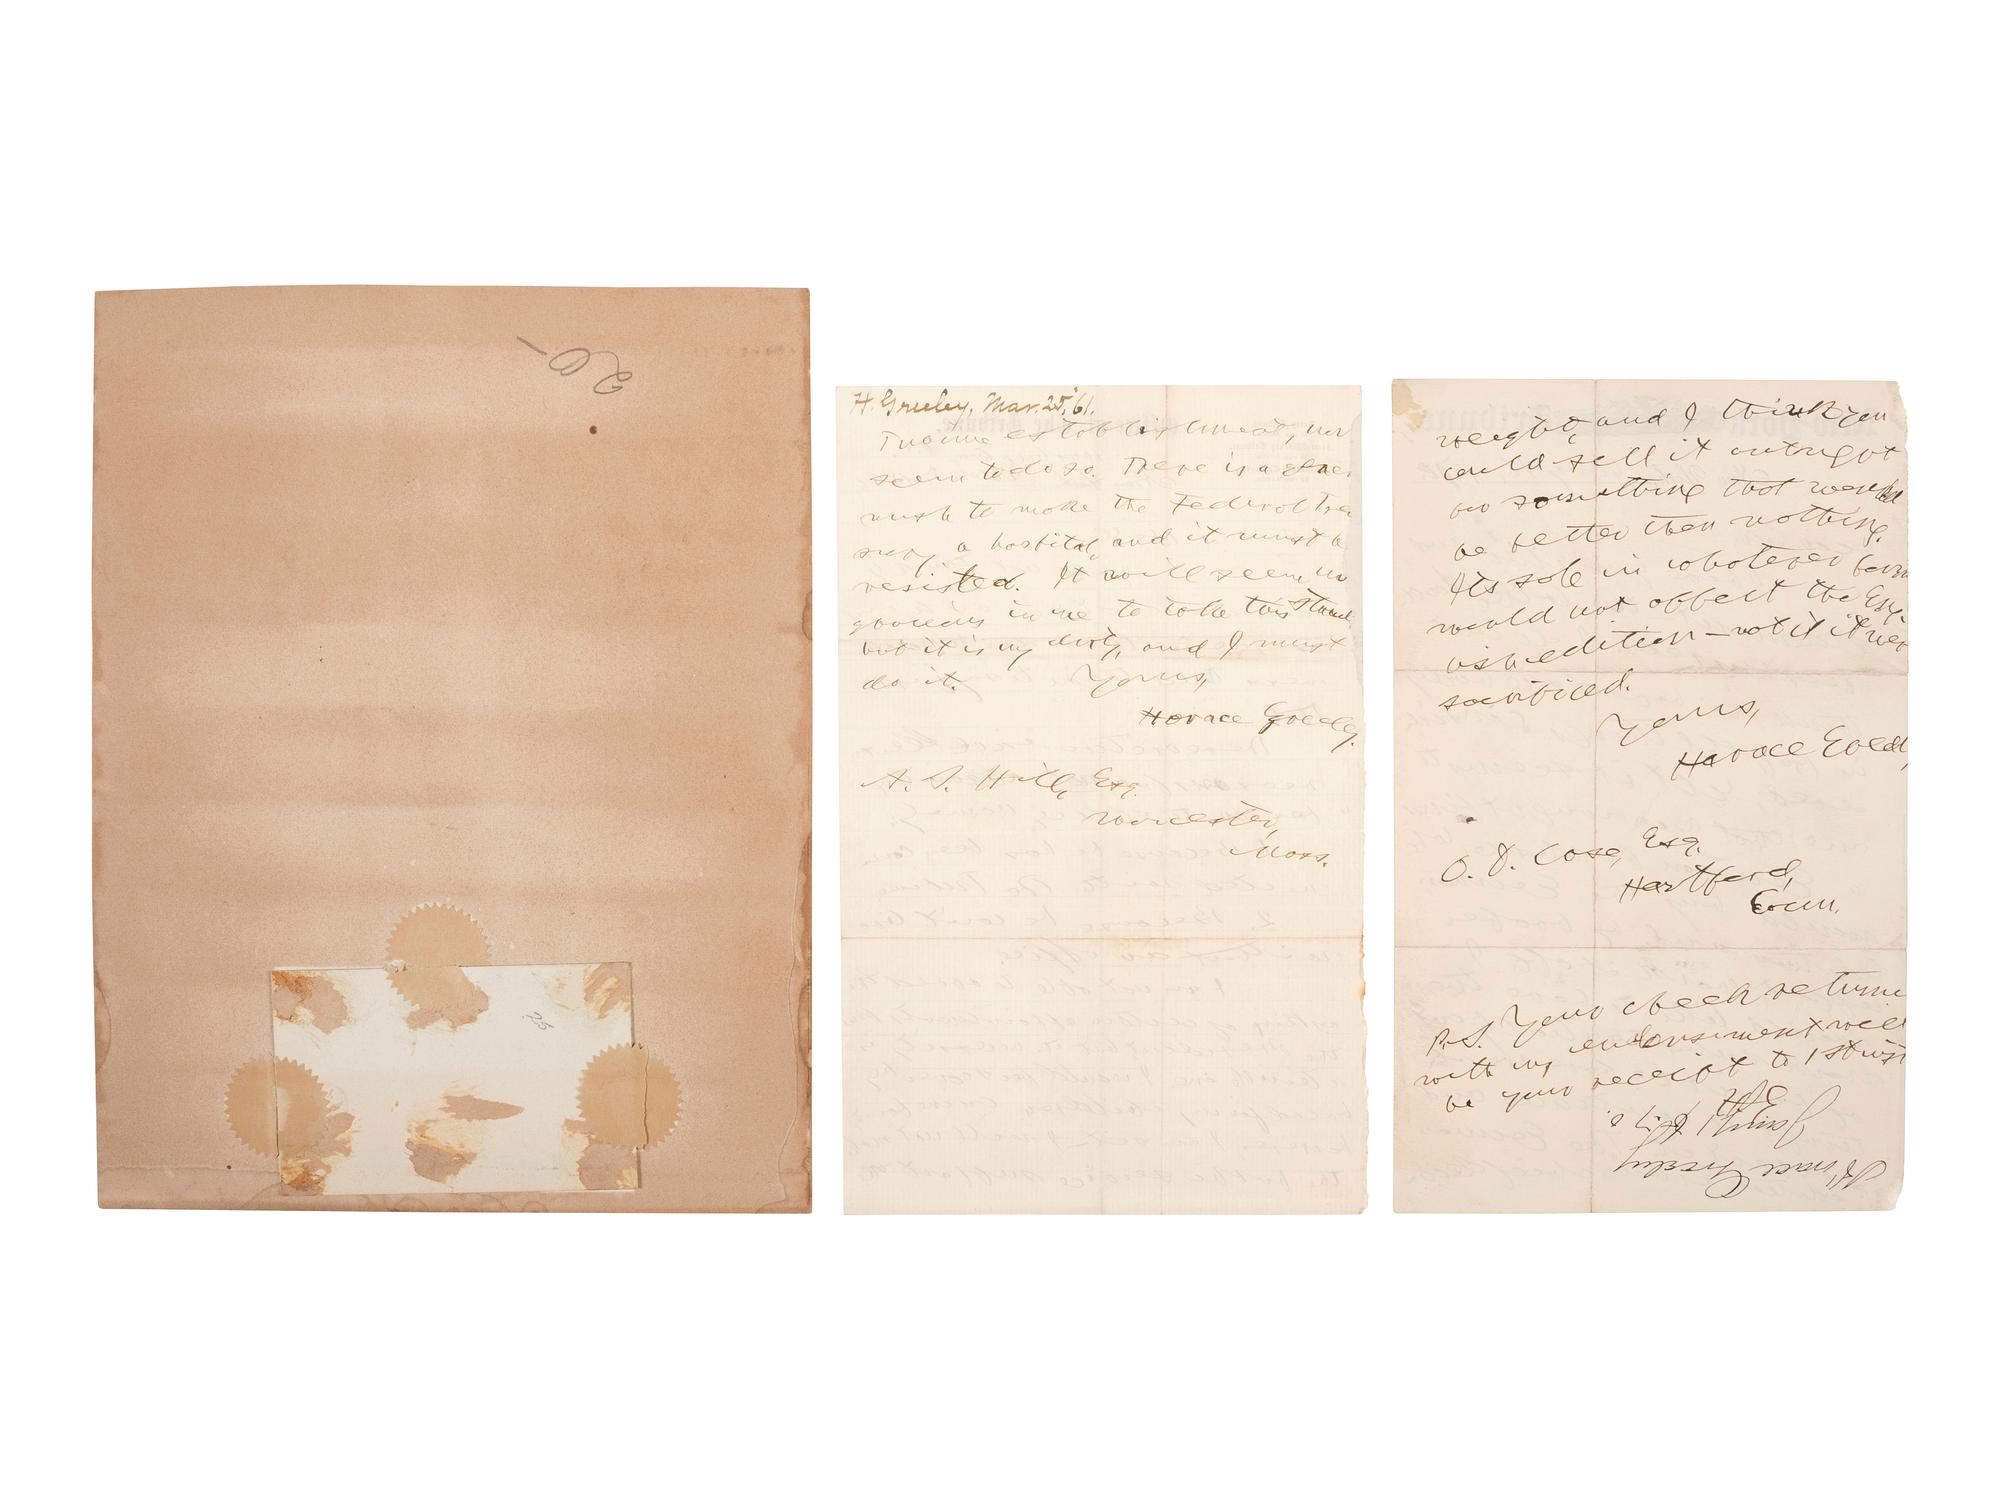 20-
H. Greeley, Mar. 25, '61.
Tribune establishment, nor
seem to do so. There is a gener
rush to make the Federal Trea
sury a hospital, and it must b
resisted. It will seem un
gracious in me to take this stand
but it is my duty, and I must
do it. Yours,
Horace Greeley.
A. S. Hill, Esq.
Worcester,
Mass.
weight, and I think you
could sell it outright
for something that would
be better than nothing.
Its sale in whatever form
would not affect the Eng
lish edition — not if it were
sacrificed.
Yours,
Horace Greel
O. D. Case, Esq.
Hartford,
Conn.
P.S. Your check returne
with my endorsement will
be your receipt to 1st inst
Horace Greeley